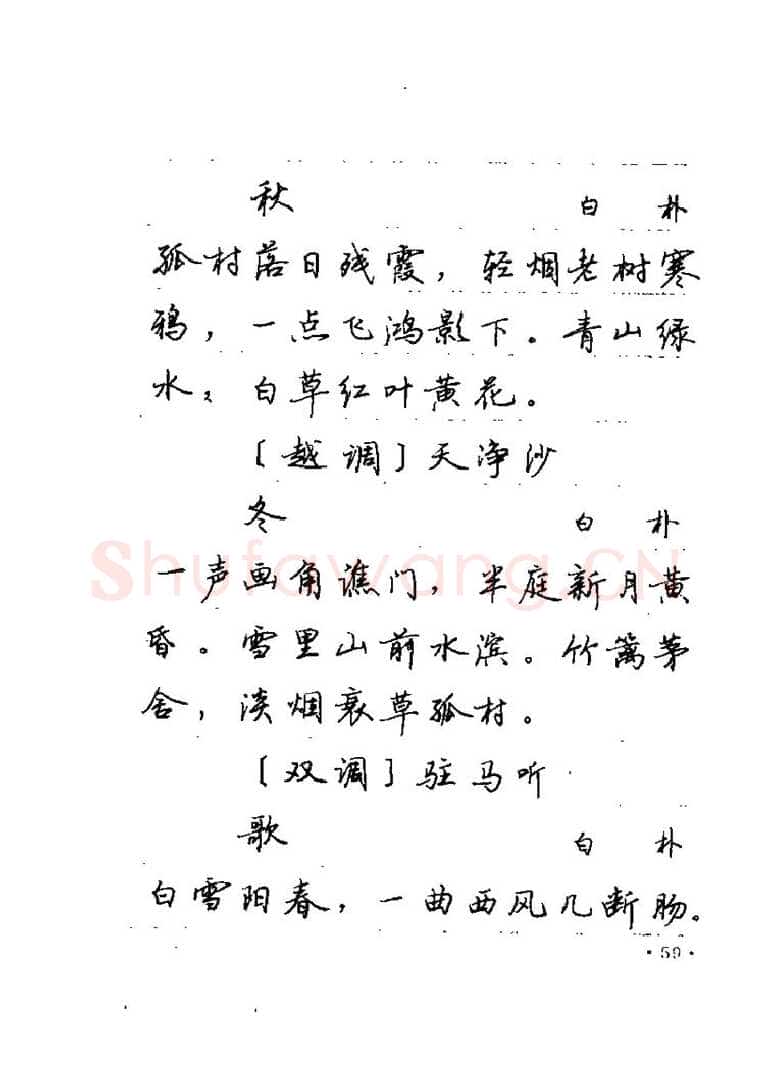 秋 白 朴
孤村落日残霞，轻烟老树寒
鸦，一点飞鸿影下。青山绿
水，白草红叶黄花。
〔越调〕天净沙
冬 白 朴
一声画角谯门，半庭新月黄
昏。雪里山前水滨。竹篱茅
舍，淡烟衰草孤村。
〔双调〕驻马听
歌 白 朴
白雪阳春，一曲西风几断肠。
·59·
Shufawang.CN